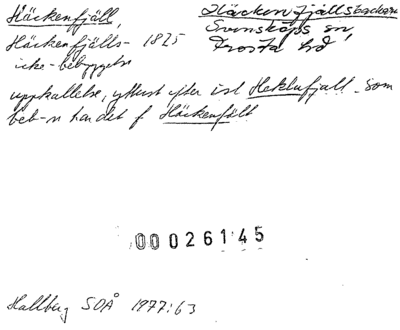 Häckenfjäll,
Häckenfjällsbacken
Häckenfjälls- 1825
Svensköps sn,
icke-bebyggelse
Frosta hd
uppkallelse, ytterst efter isl Heklufjall. Som
beb-n har det f Häckenfält
00026145
Hallberg SOÅ 1977:63